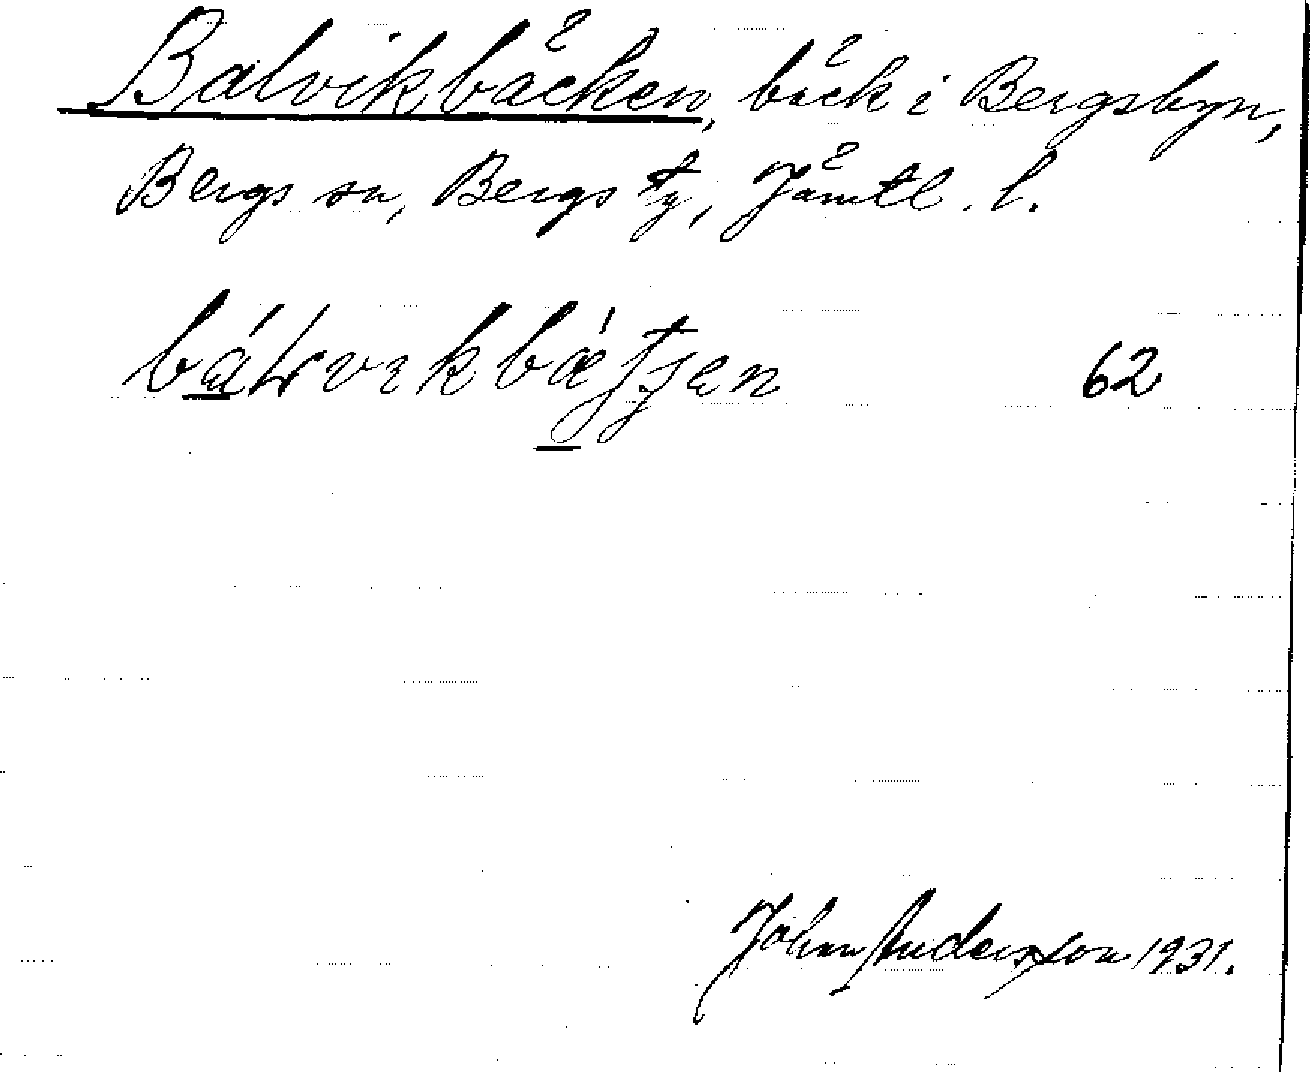 Balvikbäcken, bäck i Bergsbyn,
Bergs sn, Bergs tg, Jämtl. l.
62
Johan Anderson 1931.